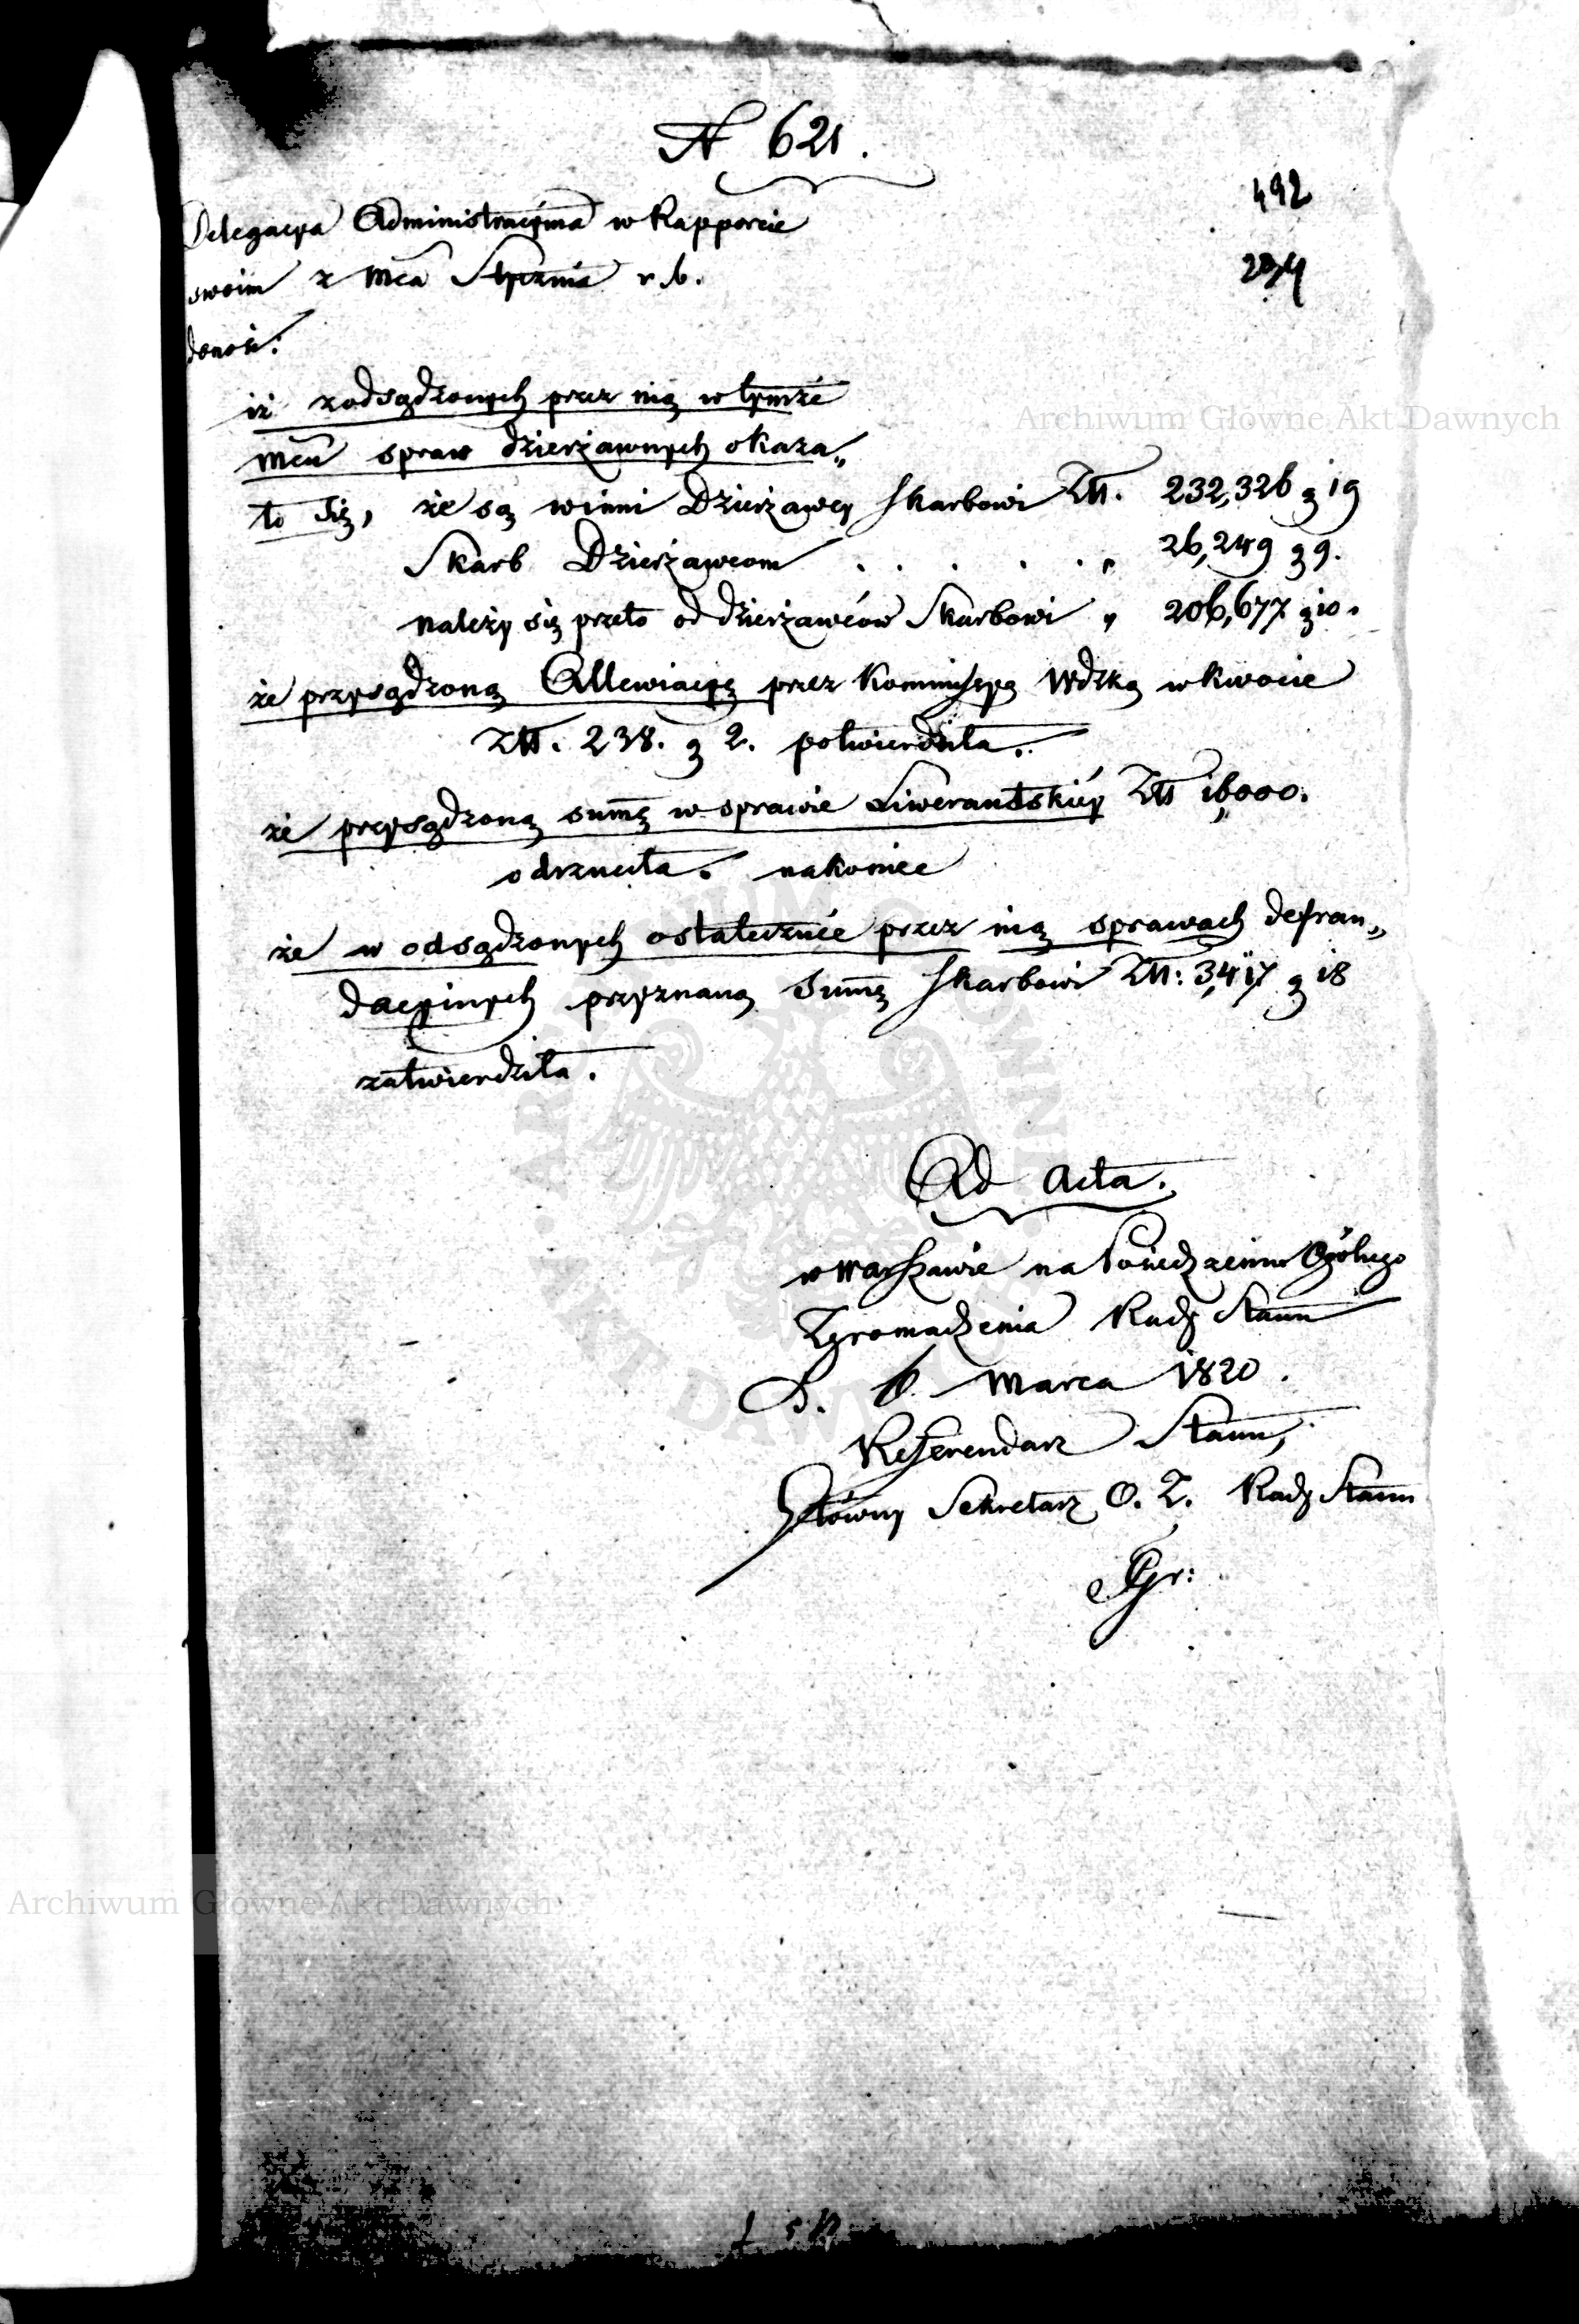 N 621.
492
234
Delegacya Administracyina w Rapporcie
swoim z Mca Stycznia r. b.
donosi:
iż z odsądzonych przez nią w tymże
Mcu spraw dzierżawnych okaza„
ło się, że są winni Dzierżawcy Skarbowi Złł. 232,326 g 19
Skarb Dzierżawcom . . . . . „ 26,249 g 9.
należy się przeto od dzierżawców Skarbowi „ 206,677 g 10.
że przysądzoną Allewiacyę przez Kommissyą Wdzką w kwocie
Złł. 238. g 2. potwierdziła.
że przysądzoną summę w sprawie Liwerantskiéy Złł 16,000.
odrzuciła. nakoniec
że w odsądzonych ostatecznie przez nią sprawach defrau„
dacyinych przyznaną Summę Skarbowi Złł: 3,417 g 18
zatwierdziła.
Ad acta.
w Warszawie na Posiedzeniu Ogólnego
Zgromadzenia Rady Stanu
D. 6. Marca 1820.
Referendarz Stanu,
Główny Sekretarz O. Z. Rady Stanu
Archiwum Głowne Akt Dawnych
Archiwum Głowne Akt Dawnych